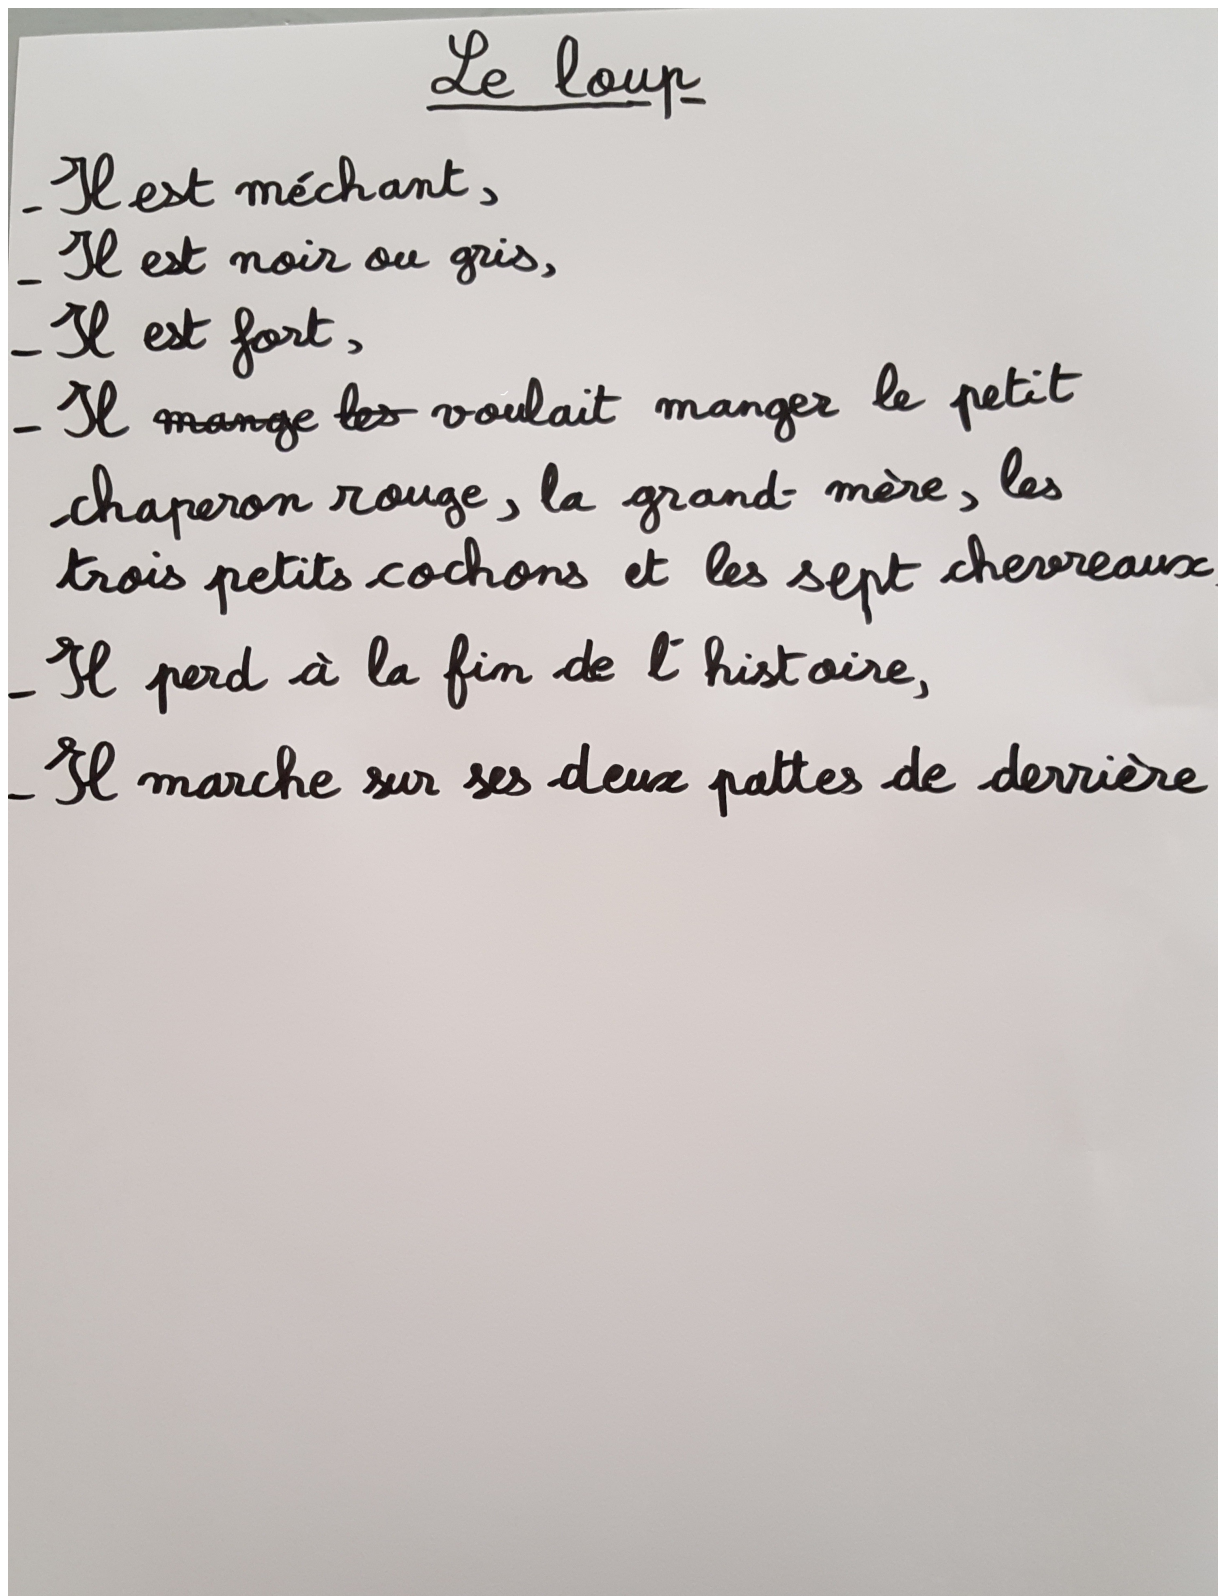 Le loup
- Il est méchant,
- Il est noir ou gris,
- Il est fort,
- Il mange les voulait manger le petit
chaperon rouge, la grand-mère, les
trois petits cochons et les sept chevreaux.
- Il perd à la fin de l'histoire,
- Il marche sur ses deux pattes de derrière